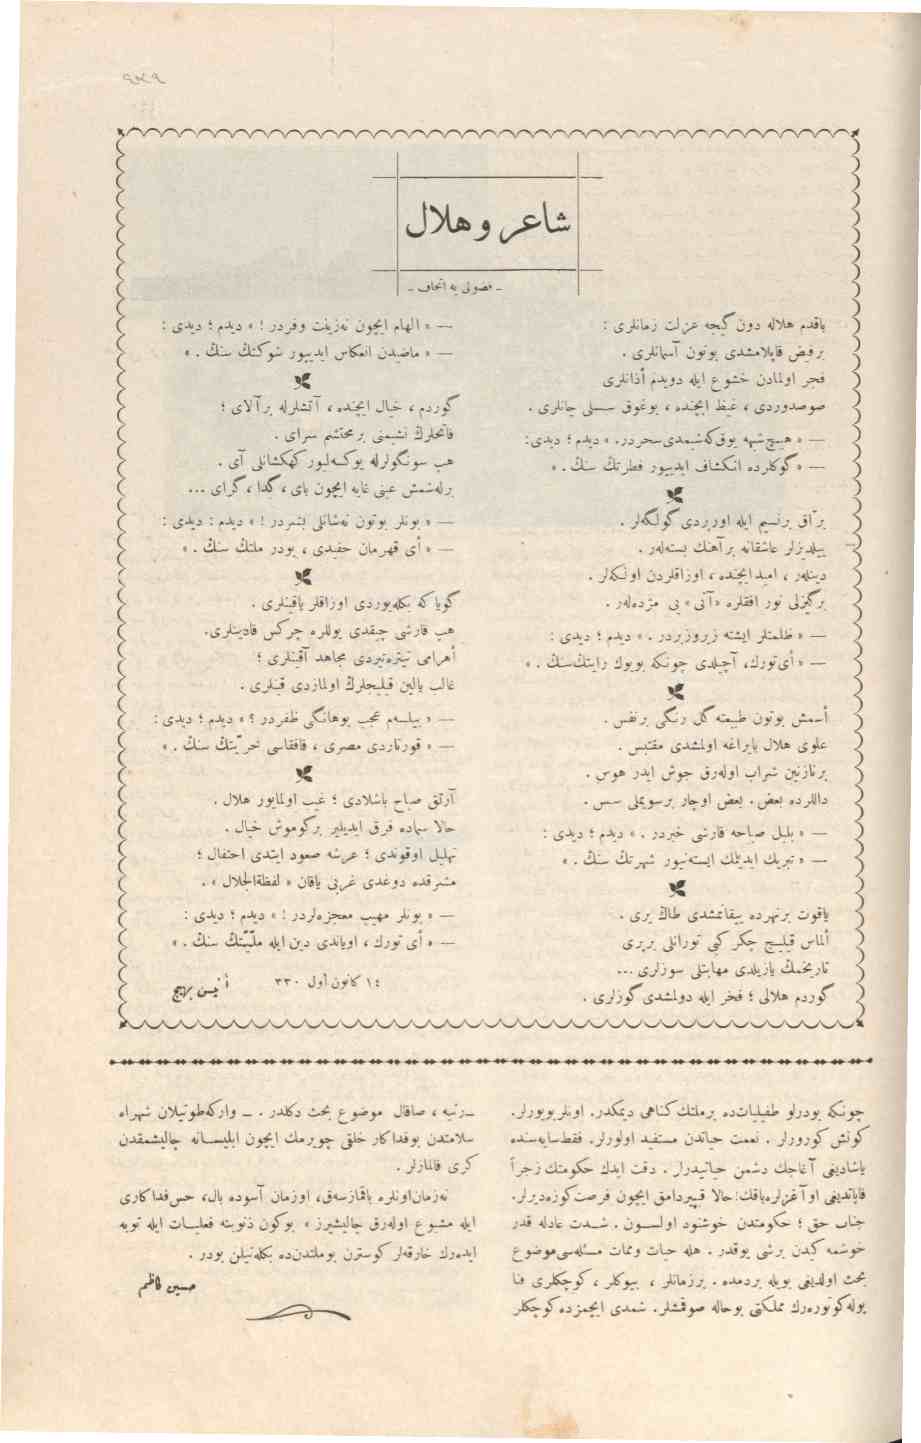 ٩٢٩
شاعر و هلال
ـ فضولی یه اتحاف ـ
باقدم هلاله دون كیجه عزلت زمانلری :
برفیض قاپلامشدی بوتون آسمانلری .
فجر اولمادن خشوع ایله دویدم أذانلری
صوصدوردی ، غیظ ایچنده ، بوغوق سسلی چانلری .
— « هیچ شبهه یوق كه شیمدی سحردر. » دیدم ؛ دیدی:
— « كوكلرده انكشاف ایدییور فطرتڭ سنڭ . »
برّاق برنسیم ایله اورردی كولكه‌لر .
ییلدیزلر عاشقانه برآهنك بسته‌لر .
دیڭلر ، امید ایچنده ، اوزاقلردن اولكه‌لر .
برگیزلی نور افقلره «آتی» یی مژده‌لر .
— « ظلمتلر ایشته زیروزبردر . » دیدم ؛ دیدی :
— « أی تورك، آچیلدی چونكه بویوك رایتڭ سنڭ . »
أسمش بوتون طبیعته گل رنگی برنفس .
علوی هلال بایراغه اولمشدی مقتبس .
برنازنین شراب اوله‌رق جوش ایدر هوس .
داللرده بعض . بعض اوچار برسویملی سس .
— « بلبل صباحه قارشی خبردر . » دیدم ؛ دیدی :
— « تبریك ایدیڭ ایسته‌نیور شهرتڭ سنڭ . »
یاقوت برنهرده ییقانمشدی طاڭ یری .
ألماس قیلیچ چكر كبی تورانلی بریری
تاریخمڭ یازیلدی مهابتلی سوزلری ...
گوردم هلالی ؛ فخر ایله دولمشدی گوزلری .
— « الهام ایچون نه زینت وفردر ! » دیدم ؛ دیدی :
— « ماضیدن انعكاس ایدییور شوكتڭ سنڭ . »
گوردم ، خیال ایچنده ، آتشلرله برآلای ؛
فاتحلرڭ نشیمنی برمحتشم سرای .
هپ سونگولرله یوكسه‌لیور كهكشانلی آی .
برله‌شمش عینی غایه ایچون بای ، گدا ، گرای ...
— « بونلر بوتون نه شانلی بشردر ! » دیدم : دیدی :
— « أی قهرمان حفیدی ، بودر ملتڭ سنڭ . »
گویا كه بكله‌یوردی اوزاقلر یاقینلری .
هپ قارشی چیقدی یوللره چركس قادینلری.
أهرامی تیتره‌تیردی مجاهد آقینلری ؛
غالب یالین قیلیجلرڭ اولمازدی قینلری .
— « بیلسه‌م عجب بوهانگی ظفردر ؟ » دیدم ؛ دیدی :
— « قورتاردی مصری ، قافقاسی حریّتڭ سنڭ . »
آرتق صباح باشلادی ؛ غیب اولمایور هلال .
حالا سماده فرق ایدیلیر بركوموش خیال .
تهلیل اوقوندی ؛ عرشه صعود ایتدی احتفال ؛
مشرقده دوغدی غربی یاقان « لفظةالجلال » .
— « بونلر مهیب معجزه‌لردر ! » دیدم ؛ دیدی :
— « أی تورك ، اویاندی دین ایله ملّیتڭ سنڭ . »
١٤ كانون أول ٣٣٠
أنیس بهیج
چونكه بودرلو طفیلیات‌ده برملتك كناهی دیمكدر. اونلر بویورلر.
كونش كورورلر . نعمت حیاتدن مستفید اولورلر. فقط سایه‌سنده
یاشادیغی آغاجك دشمن حیاتیدرلر . دقت ایدك حكومتك زجراً
قاپاتدیغی او آغزلره باقك: حالا قیپیردامق ایچون فرصت كوزه‌دیرلر.
جناب حق ؛ حكومتدن خوشنود اولسون . شدت عادله قدر
خوشمه كیدن برشی یوقدر . هله حیات وممات مسئله‌سی موضوع
بحث اولدیغی بویله بردمده . برزمانلر ، بیوكلر ، كوچكلری فنا
یوله كوتوره‌رك مملكتی بوحاله صوقمشلر. شمدی ایچمزده كوچكلر
ـ رتبه ، صاقال موضوع بحث دكلدر . ـ واركه طوتیلان شهراه
سلامتدن بوفداكار خلقی چویرمك ایچون ابلیسانه چالیشمقدن
كری قالمازلر .
نه زمان اونلره باقمازسه‌ق، اوزمان آسوده بال، حس فداكاری
ایله مشبوع اوله‌رق چالیشیرز » بوكون ذنوبنه فعلیات ایله توبه
ایده‌رك خارقه‌لر كوسترن بوملتدن‌ده بكله‌نیلن بودر .
حسین كاظم